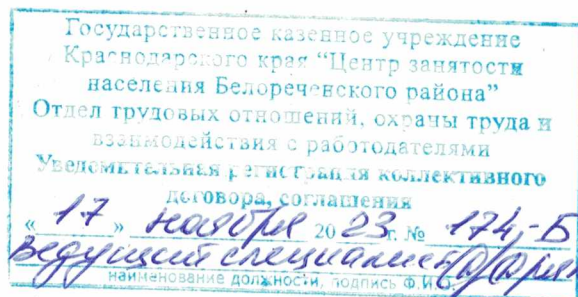 Государственное казенное учреждение
Краснодарского края “Центр занятости
населения Белореченского района”
Отдел трудовых отношений, охраны труда и
взаимодействия с работодателями
Уведомительная регистрация коллективного
договора, соглашения
« 17 » ноября 20 23 г. № 174-Б
ведущий специалист
наименование должности, подпись Ф.И.О.